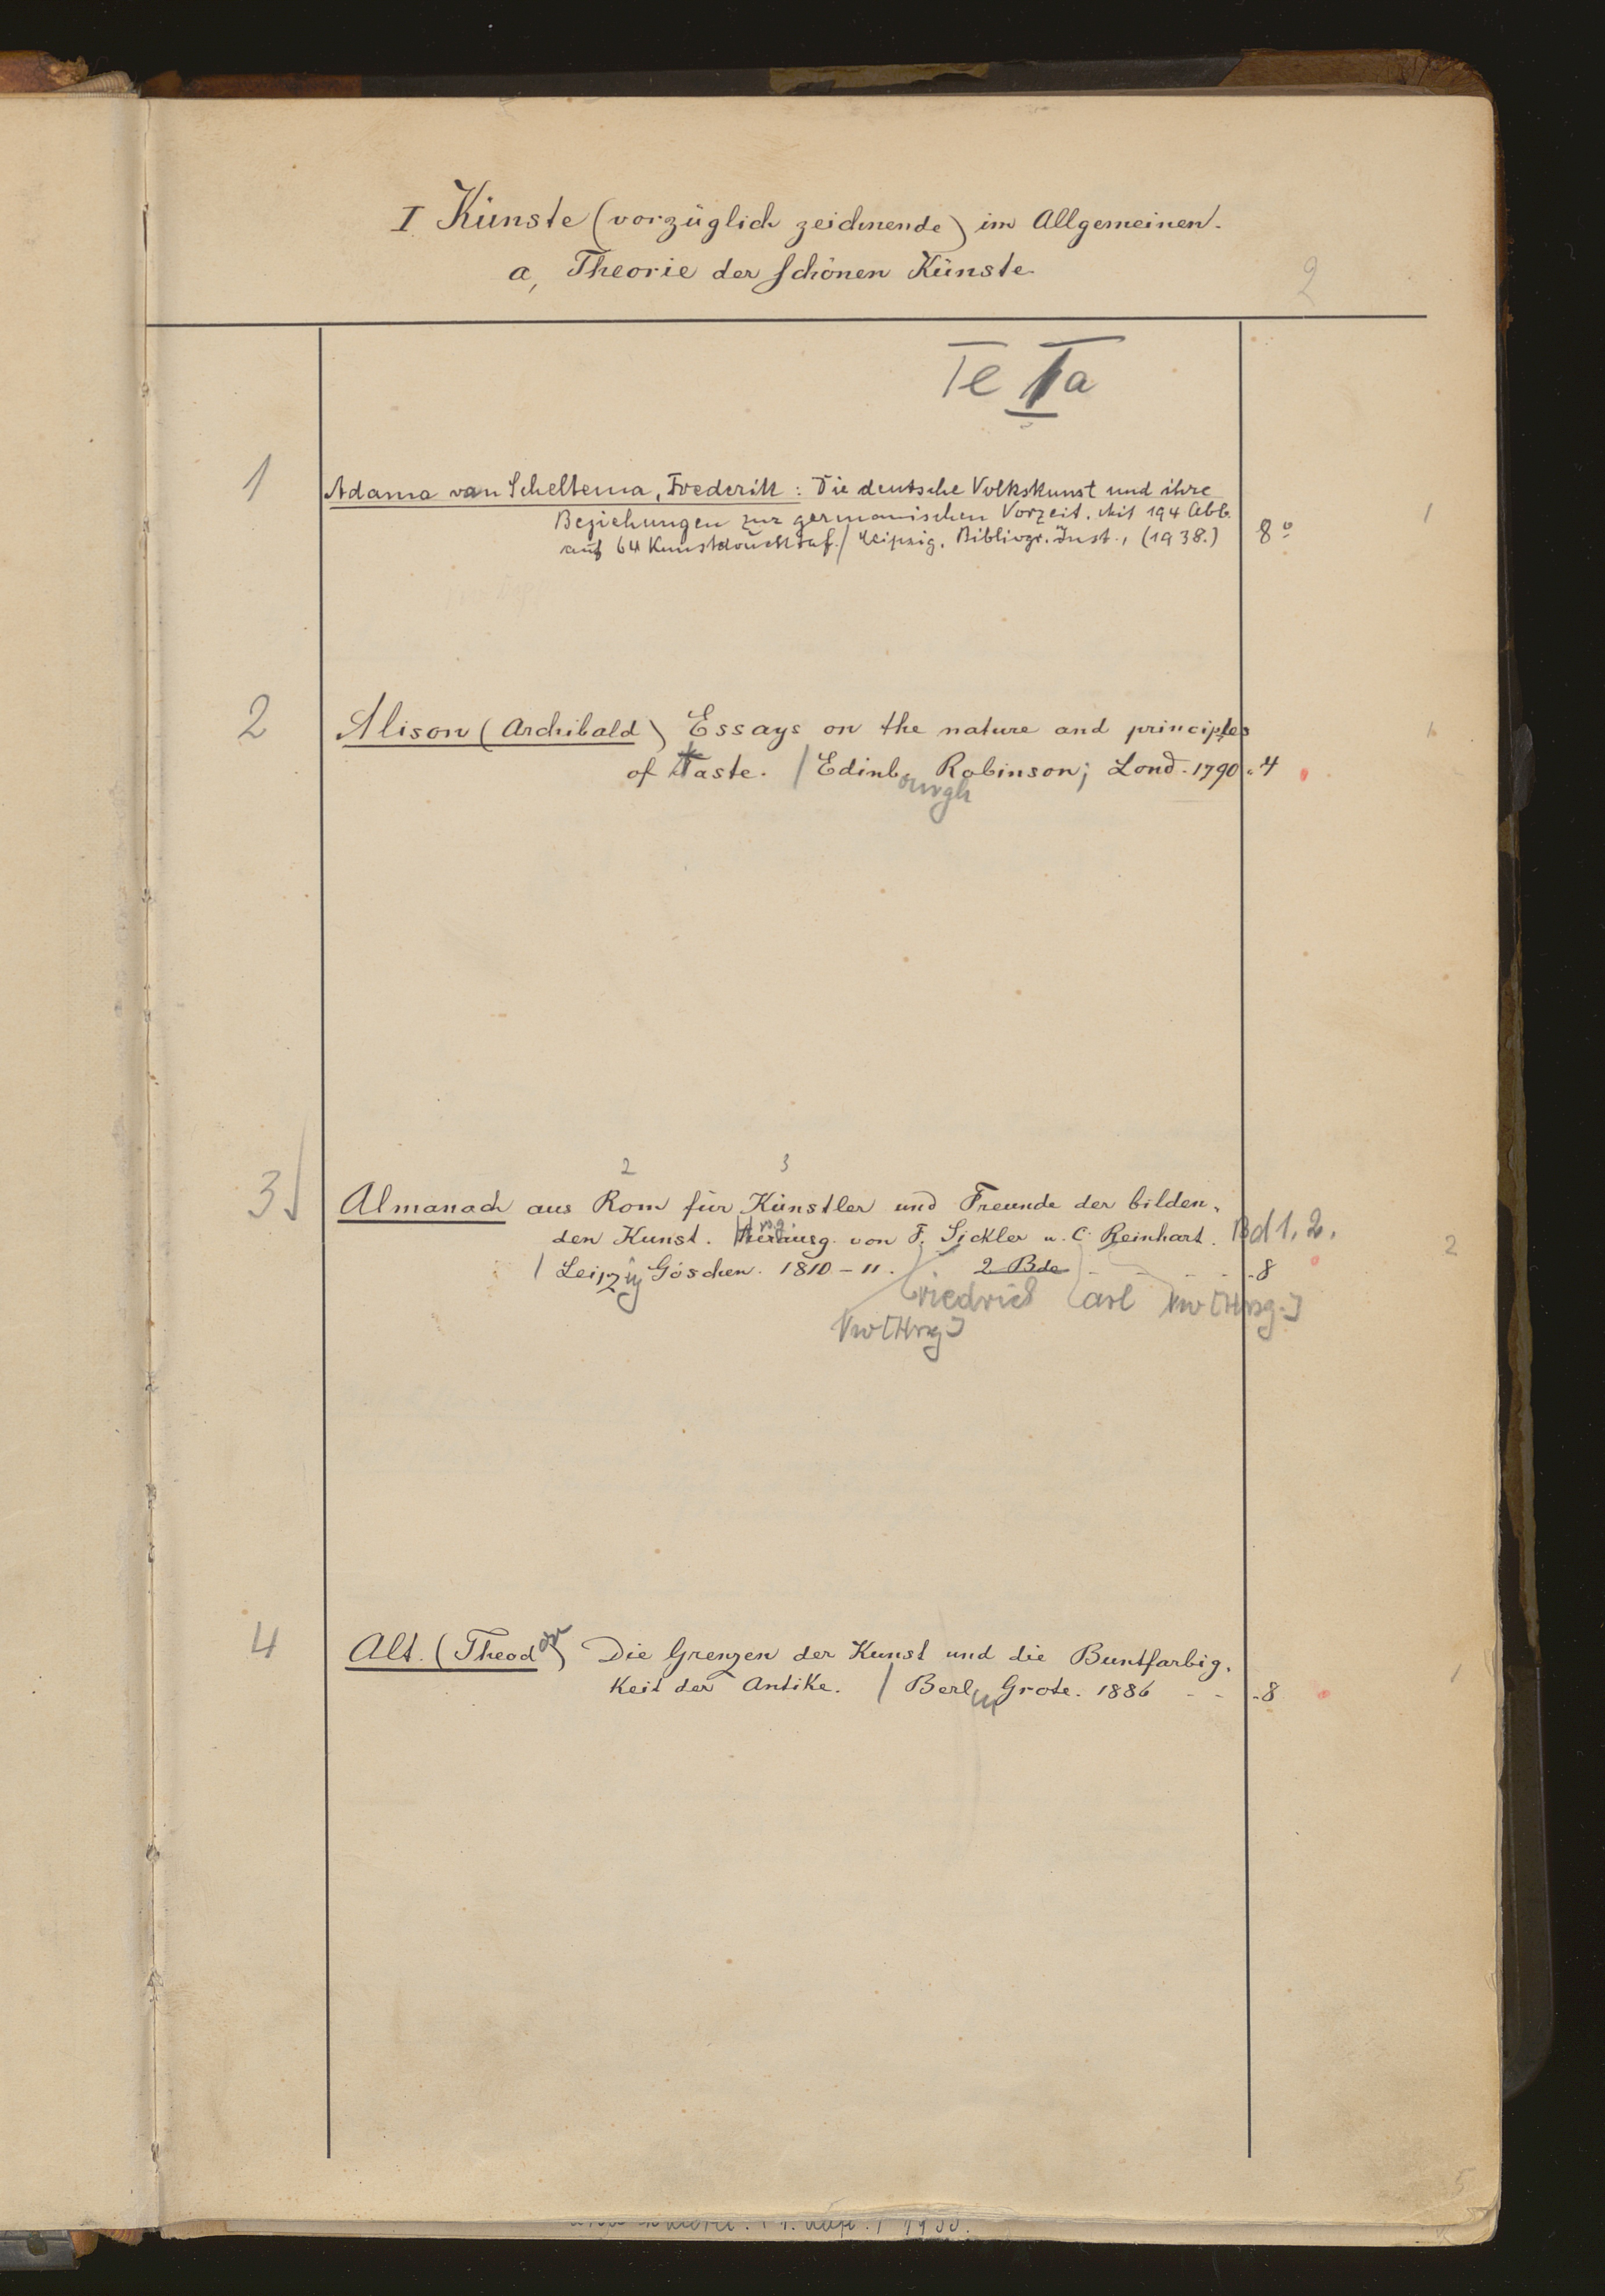 I. Künste (vorzüglich zeichnende) im Allgemeinen.
a, Theorie der schönen Künste.
2
Te I a
1
Adama van Scheltema, Frederik: Die deutsche Volkskunst und ihre
Beziehungen zur germanischen Vorzeit. Mit 194 Abb.
auf 64 Kunstdrucktaf. / Leipzig, Bibliogr. Inst., (1938.) 8°
1
2
Alison (Archibald) Essays on the nature and principles
of taste. / Edinb. Robinson; Lond. 1790. 4
ourgh
1
2 3
3
Almanach aus Rom für Künstler und Freunde der bilden-
den Kunst. Hrsg. Herausg. von F. Sickler u. C. Reinhart. Bd 1. 2.
2
/ Leipzig Göschen. 1810-11. 2 Bde - - - - 8
Friedrich Carl Vw [Hrsg.]
Vw [Hrsg]
4
Alt. (Theodor) Die Grenzen der Kunst und die Buntfarbig-
keit der Antike. / Berlin Grote. 1886 - - - 8
1
5